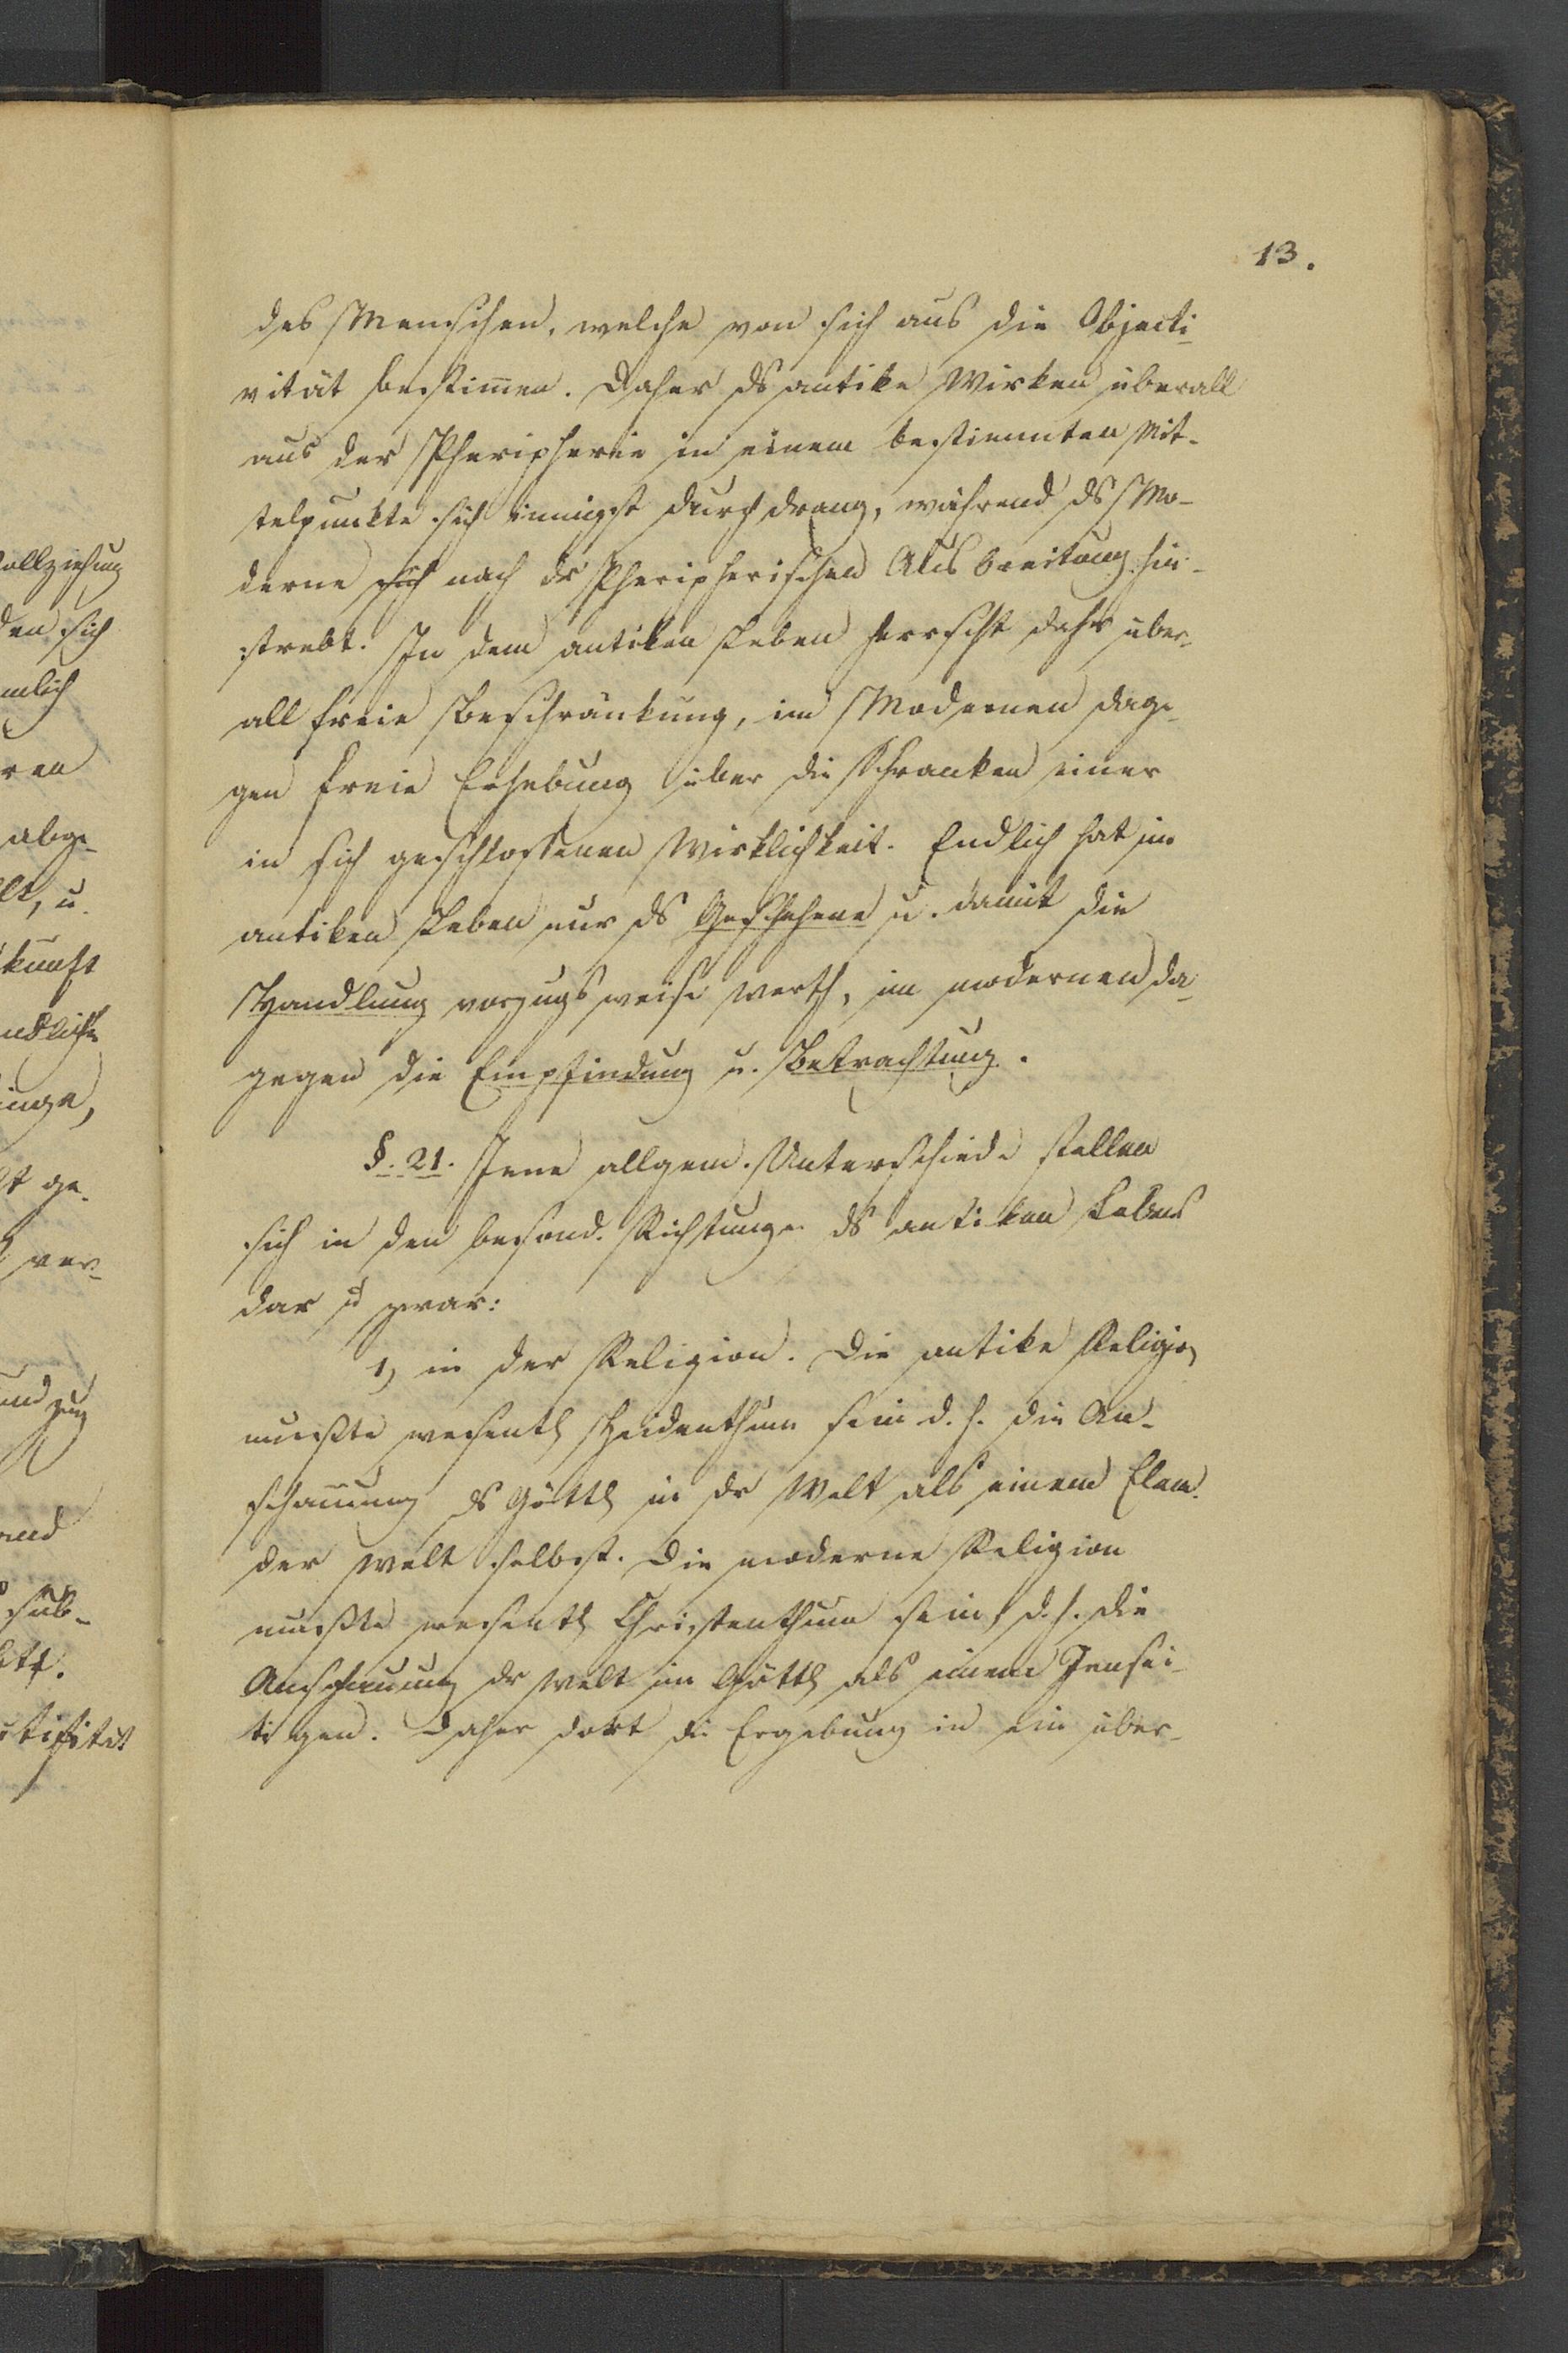 13.
des Menschen, welche von sich aus die Objecti-
vität bestim̄en. Daher ds antike Wirken überall
aus der Pheripherie in einem bestimmten Mit-
telpunkte sich innigst durchdrang, während ds Mo-
derne sich nach dr Pheripherischen Ausbreitung hin-
strebt. In dem antiken Leben herrscht dahr über-
all freie Beschränkung, im Modernen dage-
gen freie Erhebung über die Schranken einer
in sich geschlossenen Wirklichkeit. Endlich hat im
antiken Leben nur ds Geschehene u. damit die
Handlung vorzugsweise Werth, im modernen da-
gegen die Empfindung u. Betrachtung.
§. 21. Jene allgem. Unterschiede stellen
sich in den besond. Richtungen ds antiken Lebens
dar u zwar:
1) in der Religion. Die antike Religion
mußte wesentl Heidenthum sein d. h. die An-
schauung ds Göttl in dr Welt als einem Elem.
der Welt selbst. Die moderne Religion
mußte wesentl Christenthum sein, d. h. die
Anschauung dr Welt im Göttl als einem Jensei-
tigen. Daher dort die Ergebung in ein über-
ollziehung
den sich
mlich
ren
abge-
lt, u.
kunft
ndliche
inge,
lt ge-
ver-
und
sub-